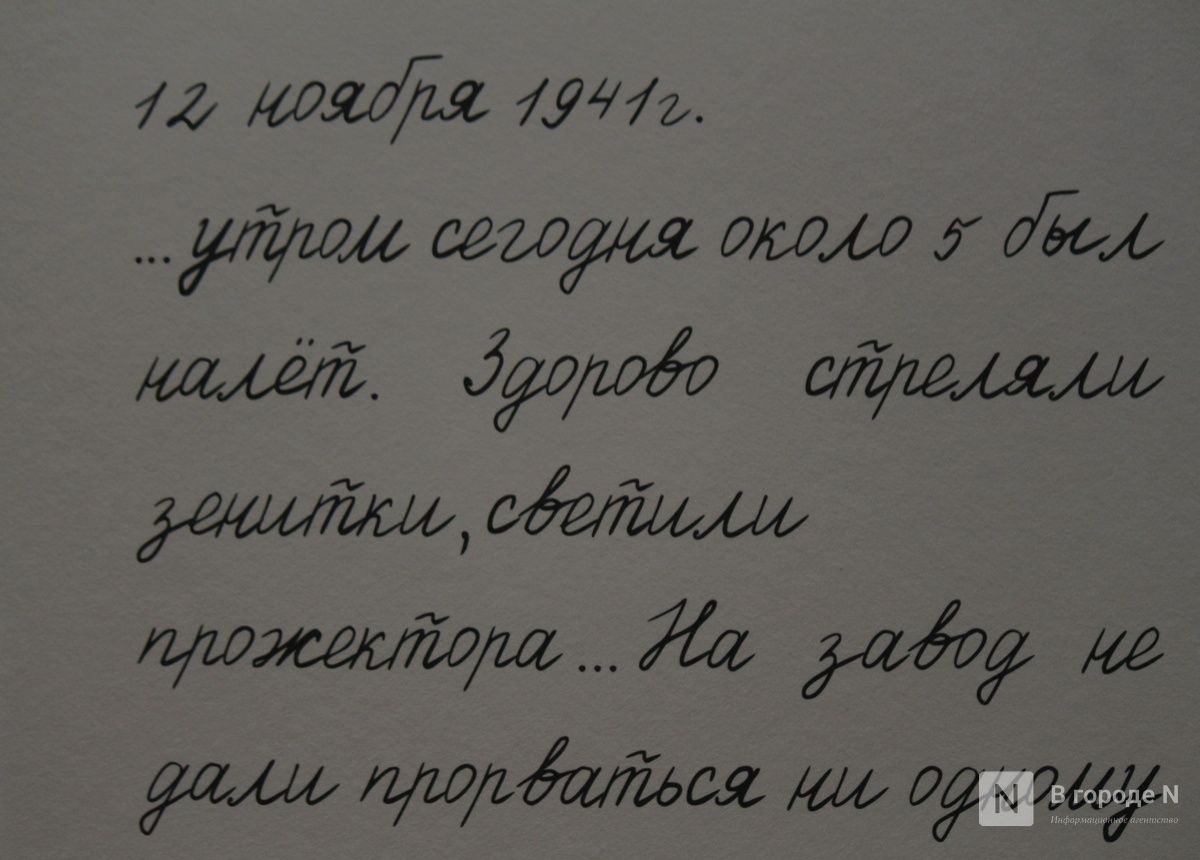 12 ноября 1941г.
...утром сегодня около 5 был
налёт. Здорово стреляли
зенитки, светили
прожектора... На завод не
дали прорваться ни одному
N В городе N
Информационное агентство